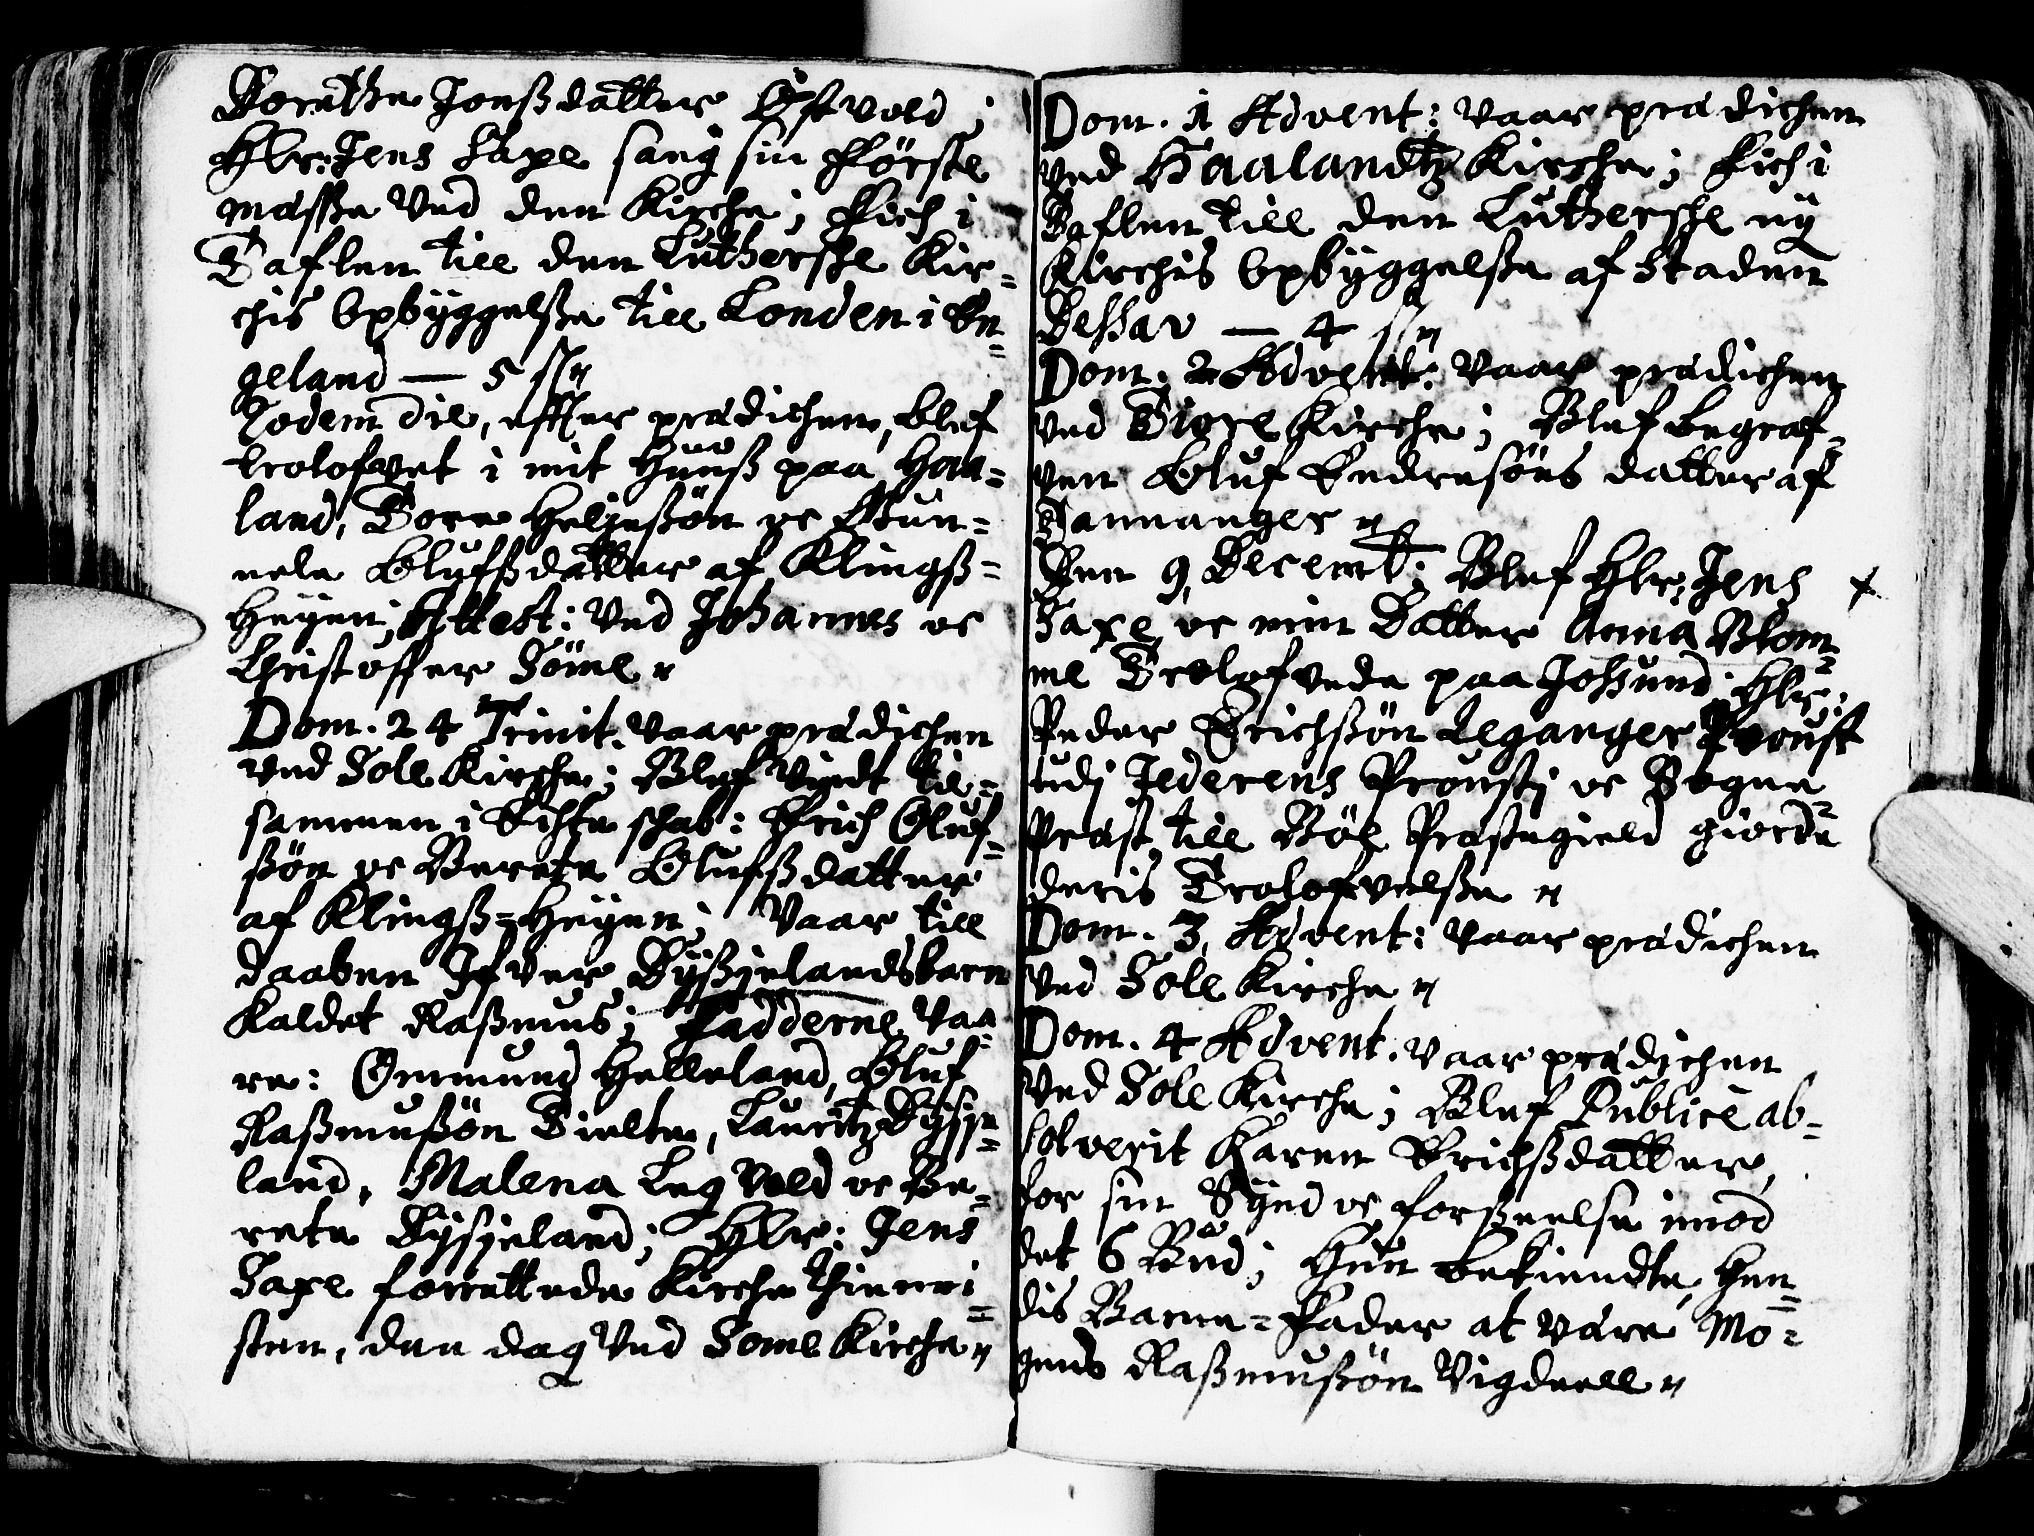 Dorethe Jonßdatter Østvold;
Hlr: Jens Saxe sang sin første
mæsse ved den Kirche; fich i
Taflen till den Lutherske Kir=
chis Opbyggelße till Londen i En=
geland — 5 ß
Eodem die, efter prædichen, blef
trolofvet i mit Huuß paa Haa=
land, Tore Helgesøn oc Gun=
nele Olufßdatter af Klingß=
Heyen; Attest: ved Johannes oc
Christoffer Søme
Dom. 24 Trinit. vaar prædichen
ved Sole Kirche; Blef Viedt til=
sammen i Echteschab: Erich Oluf=
søn oc Berete Olufßdatter
af Klingß=Heyen; Vaar till
daaben Ifver Dyßjelands barn
kaldet Raßmus; Fadderne vaa=
re: Ommund Helleland, Oluf
Raßmußøn Tielte, Lauritz Dysje=
land, Malena Legvold oc Be=
rete Dysjeland; Hlr: Jens
Saxe forrettede Kirche thienni=
sten, den dag ved Some Kirche
Dom. 1 Advent: vaar prædichen
ved Haalandtz Kirche; fich i
Taflen till den Lutherske ny
Kirchis Opbyggelße af Staden
Dessav — 4 ß
Dom. 2 Advent: vaar prædichen
ved Tiore Kirche; Blef begraf=
ven Oluf Endresøns datter af
Tannanger
Den 9, Decemb: Blef Hlr: Jens
Saxe oc min Datter Anna Blom=
me Trolofvede paa Joßund; Hlr:
Peder Erichßøn Leganger Proust
udj Jederens Proustj oc Sogne=
Præst till Bøe Præstegield giorde
deris Trolofvelße
Dom. 3, Advent: vaar prædichen
ved Sole Kirche
Dom. 4 Advent. vaar prædichen
ved Sole Kirche; Blef Publice ab=
solverit Karen Erichßdatter,
for sin Synd oc forseelse imod
det 6 Bud; Hun bekiendte, Hen=
dis Barne=Fader at være Mo=
gens Raßmußøn Vigdeell